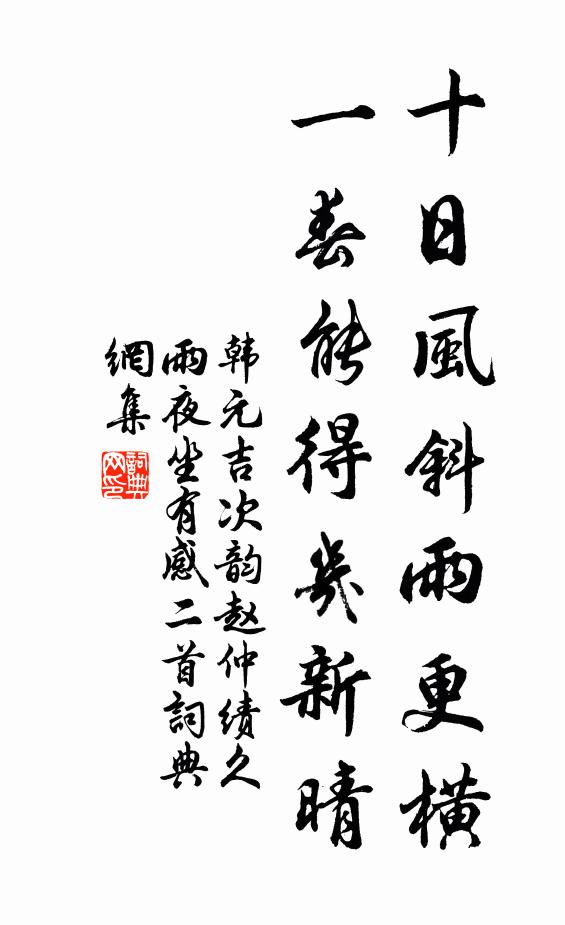 十日風斜雨更橫
一春能得幾新晴
韩元吉次韵赵仲绩久
雨夜坐有感二首詞典
網集
詞典網印